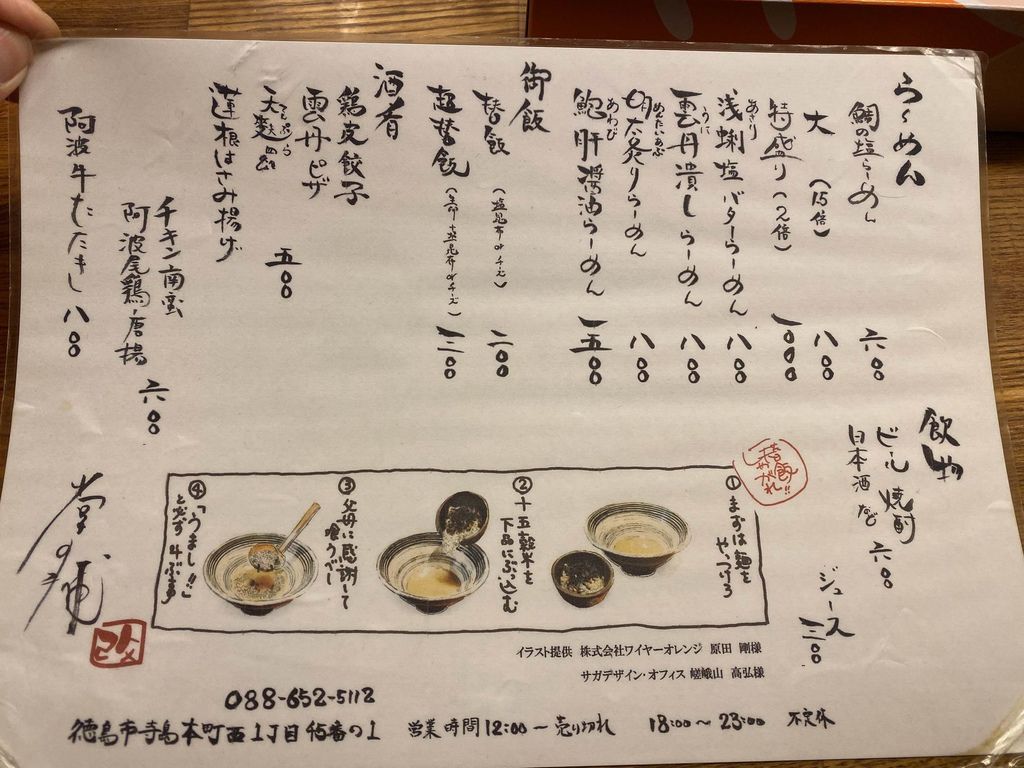 らーめん
鯛の塩らーめん 六〇〇
大(1.5倍) 八〇〇
特盛り(2倍) 一〇〇〇
あさり
浅蜊塩バターらーめん 八〇〇
うに
雲丹潰しらーめん 八〇〇
めんたいあぶ
明太炙りらーめん 八〇〇
あわび
鮑肝醤油らーめん 一五〇〇
御飯
替飯(塩昆布orチーズ) 二〇〇
超替飯 三〇〇
酒肴
鶏皮餃子
雲丹ピザ
てんぷら
五〇〇
蓮根はさみ揚げ
チキン南蛮
阿波尾鶏唐揚 六〇〇
阿波牛たたき 八〇〇
飲物
ビール 焼酎
日本酒など 六〇〇
ジュース 三〇〇
替飯
①まずは麺を
やっつけろ
②十五穀米を
下品にぶっ込む
③父母に感謝して
喰うべし
④「うまし!!」
イラスト提供 株式会社ワイヤーオレンジ 原田 剛様
サガデザイン・オフィス 嵯峨山 高弘様
088-652-5112
徳島市寺島本町西1丁目45番の1 営業時間12:00〜売り切れ 18:00〜23:00 不定休